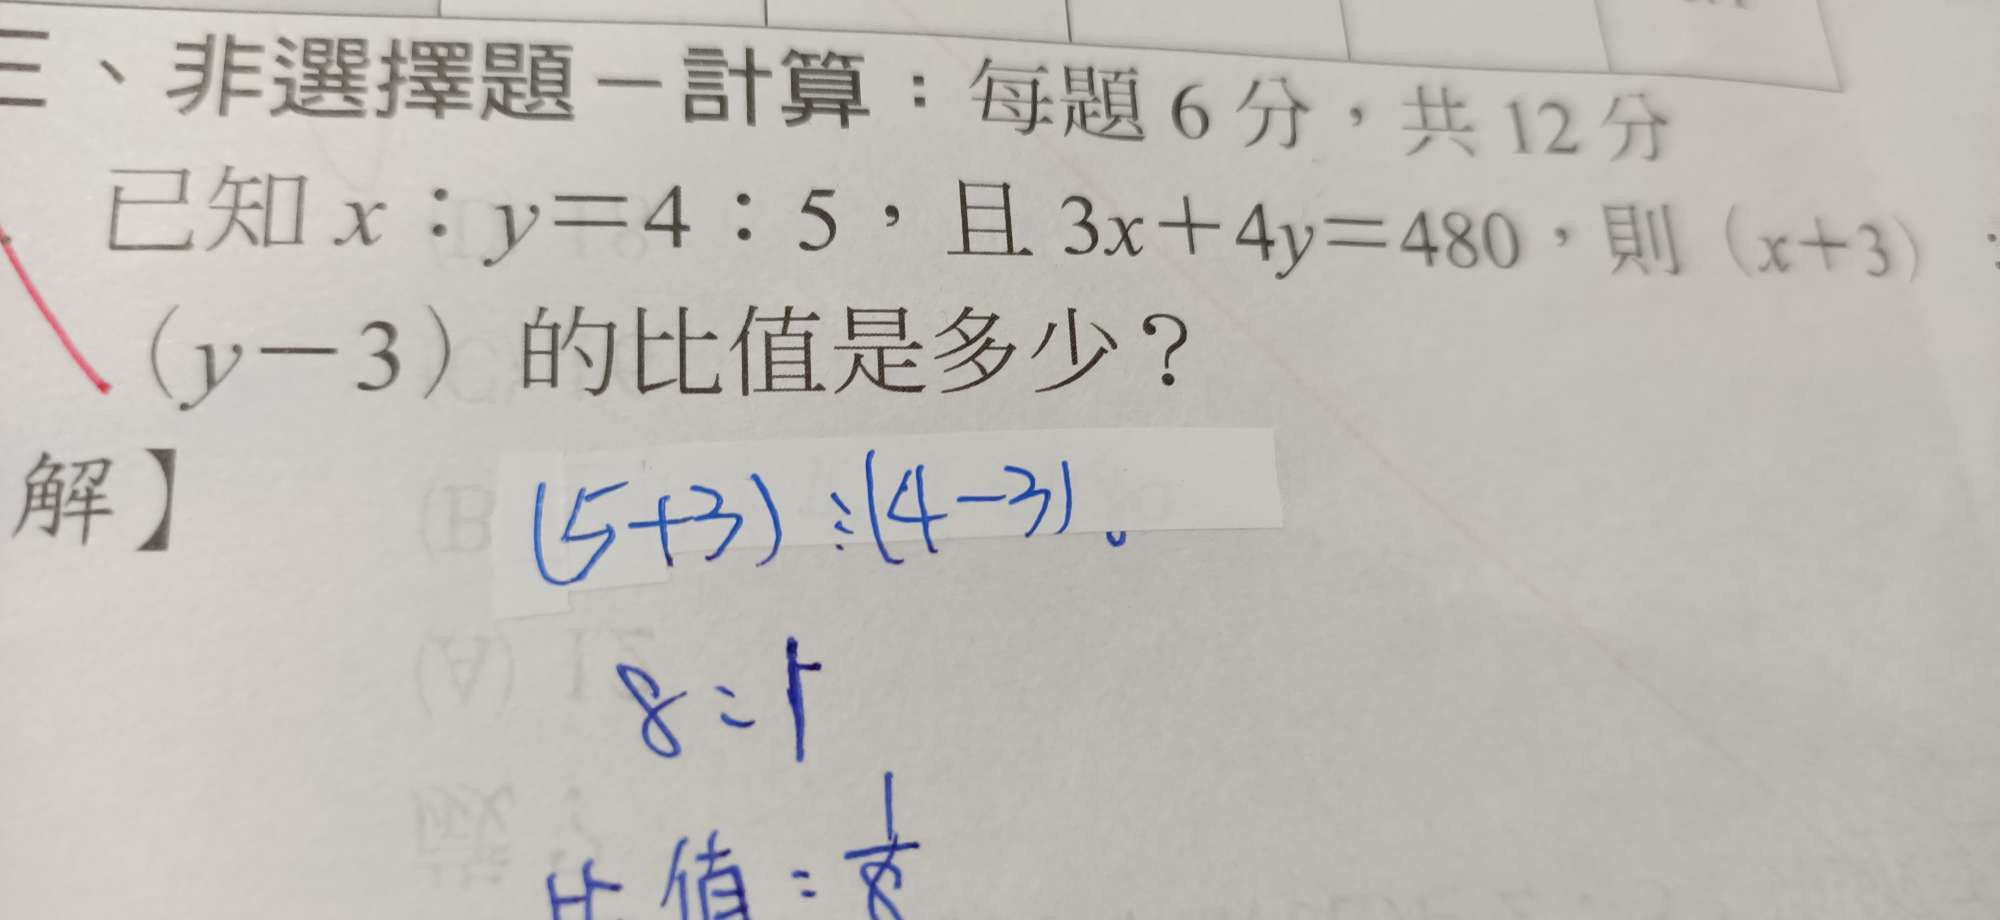 三、非選擇題－計算：每題 6 分，共 12 分
已知 x：y＝4：5，且 3x＋4y＝480，則（x＋3）：
（y－3）的比值是多少？
解】
(5+3):(4-3)
8:1
比值:1/8